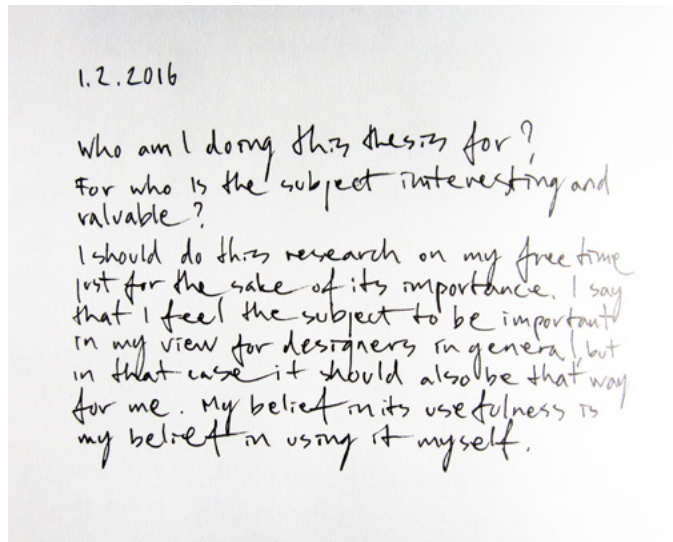 1.2.2016
Who am I doing this thesis for?
For who is the subject interesting and
valuable?
I should do this research on my free time
just for the sake of its importance. I say
that I feel the subject to be important
in my view for designers in general, but
in that case it should also be that way
for me. My belief in its usefulness is
my belief in using it myself.